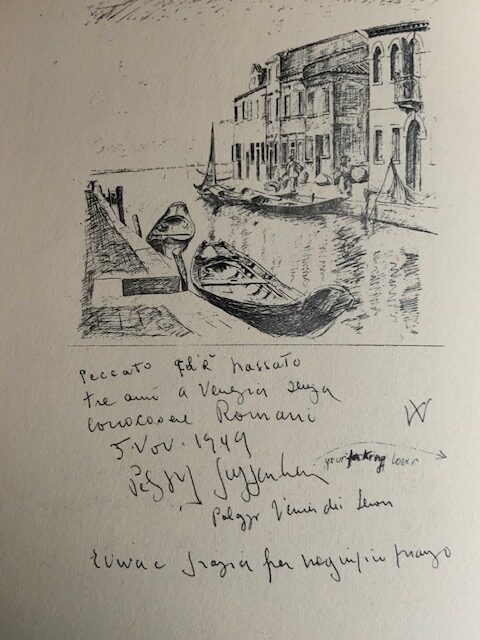 Peccato ch'è passato
tre anni a Venezia senza
conoscere Romano
5. Nov. 1949
Peggy Guggenheim
your fucking lover
Palazzo Venier dei Leoni
Evviva e grazia per magnifico pranzo